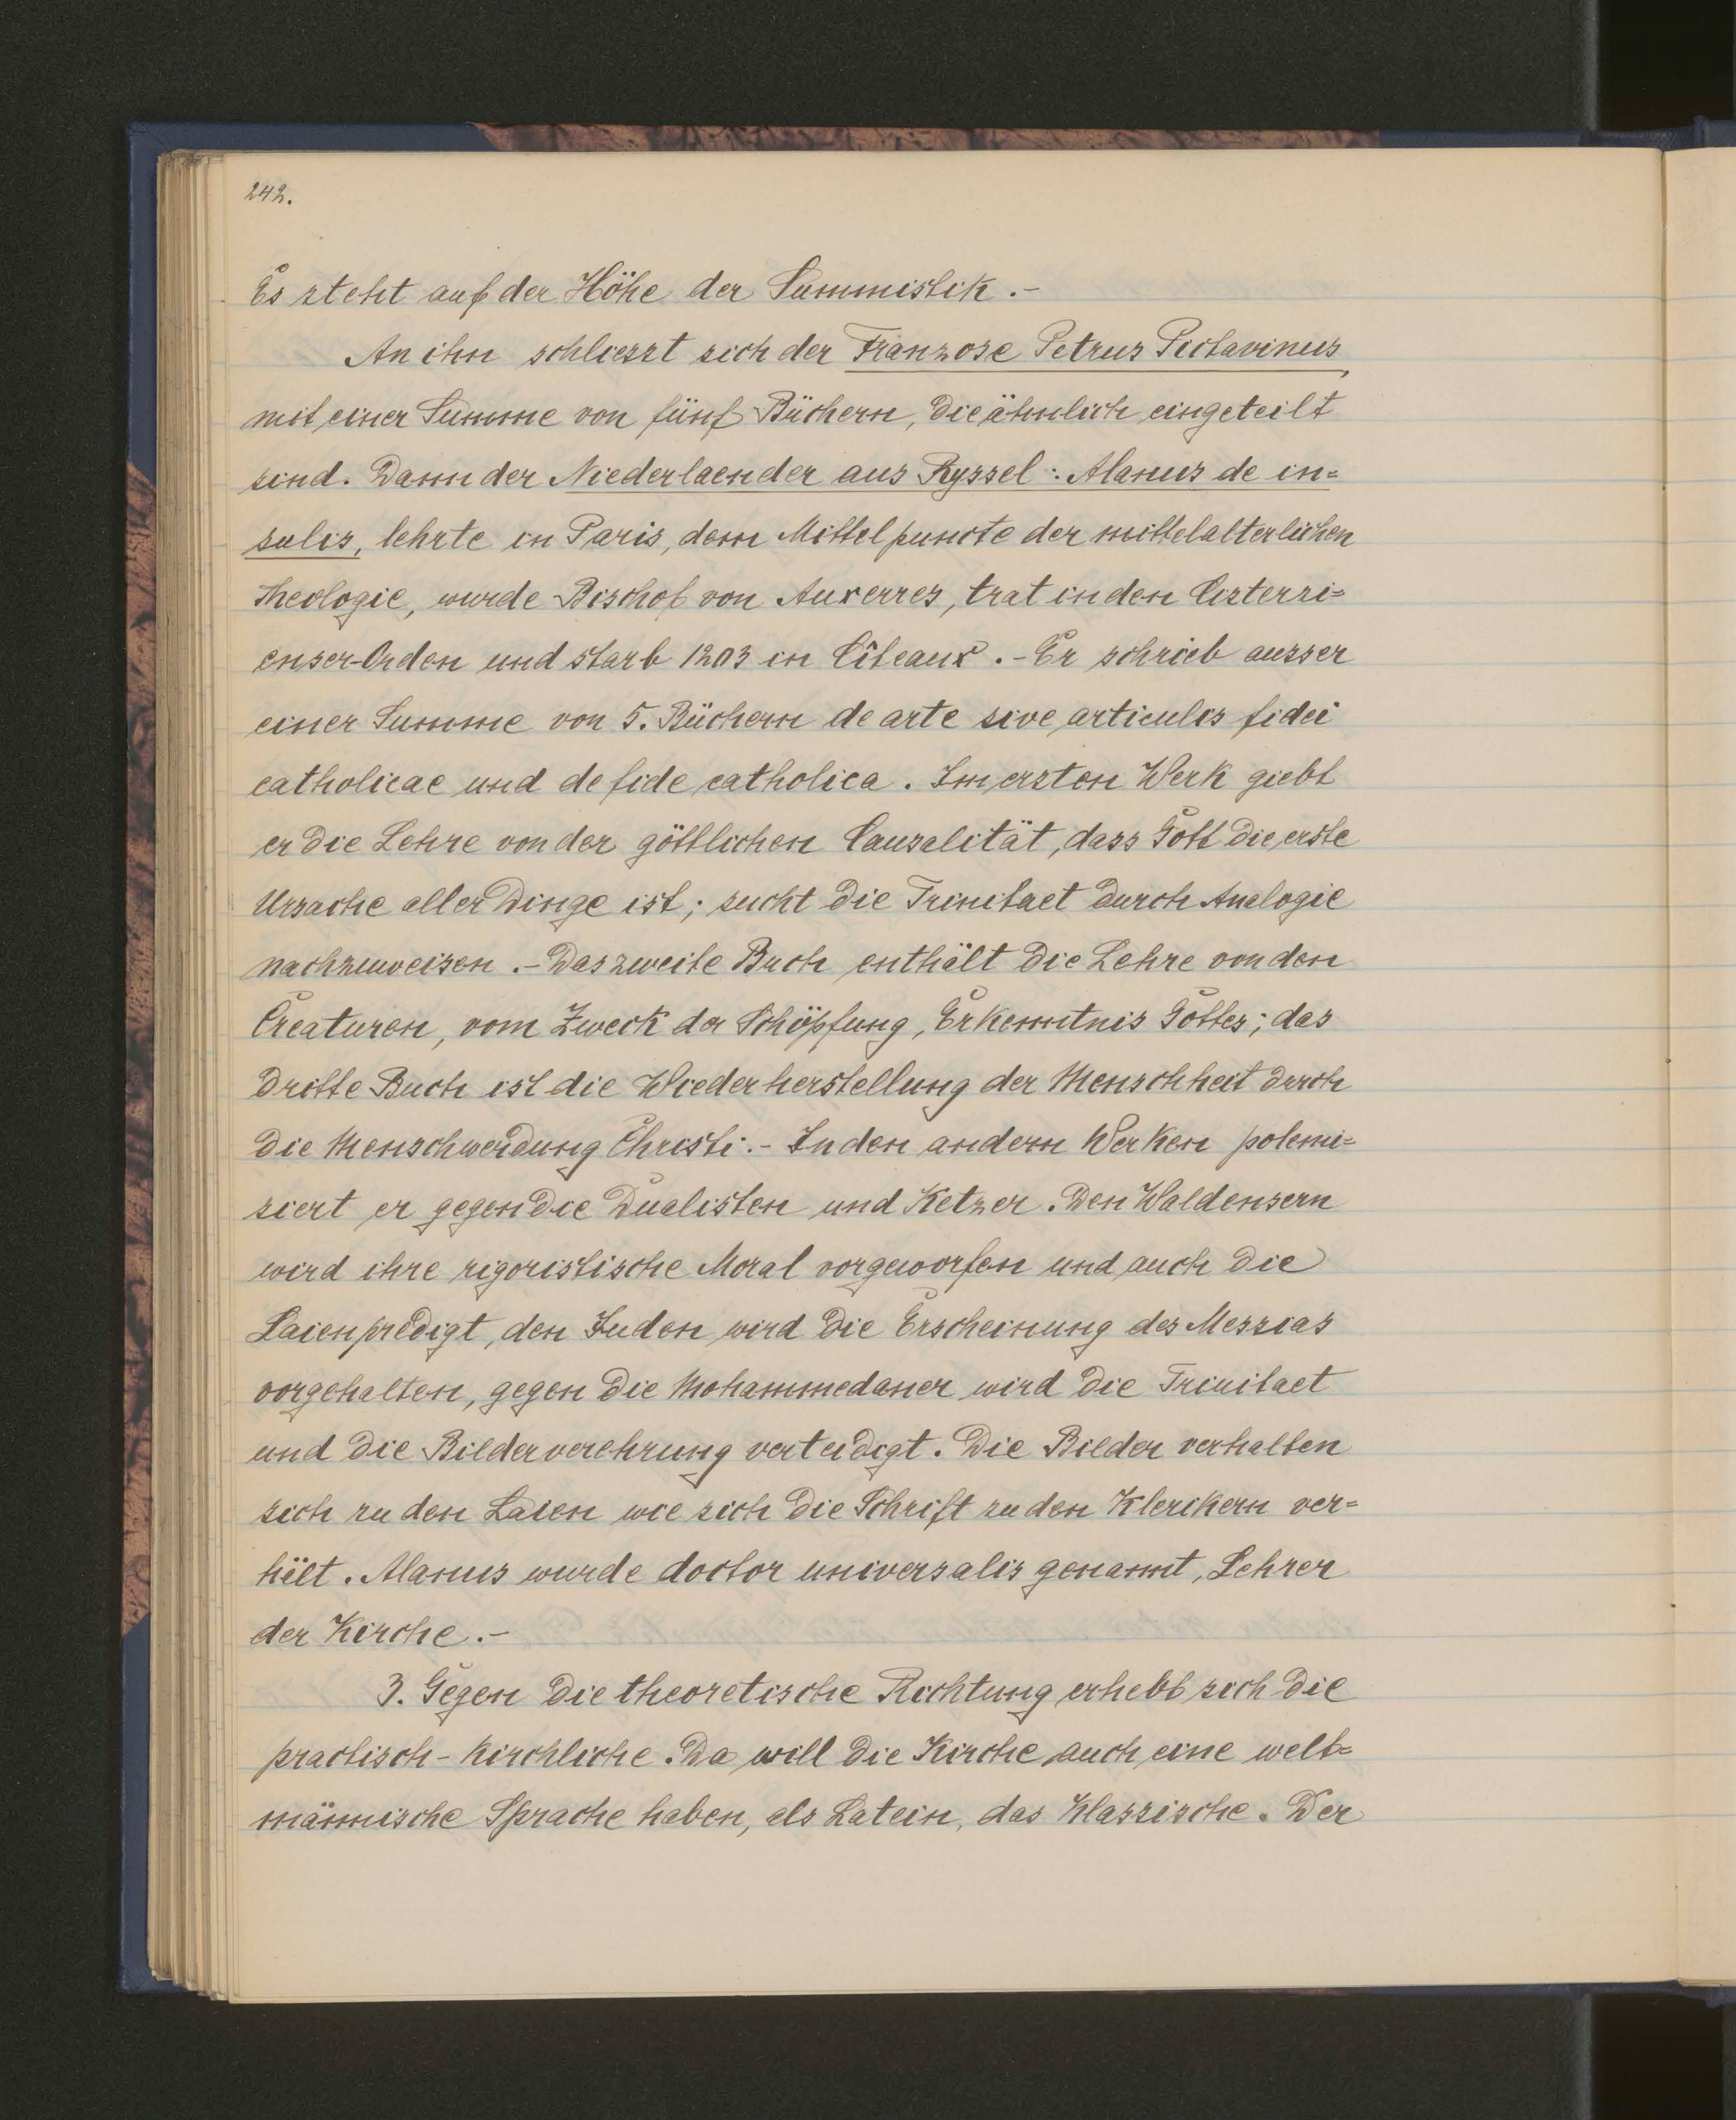 242.
Es steht auf der Höhe der Summistik.-
An ihn schliesst sich der Franzose Petrus Pictavinus
mit einer Summe von fünf Büchern, die ähnlich eingeteilt
sind. Dann der Niederlaender aus Ryssel: Alanus de in=
sulis, lehrte in Paris, dem Mittelpuncte der mittelalterlichen
Theologie, wurde Bischof von Auxerres, trat in den Cisterzi=
enser-Orden und starb 1203 in Cîteaux.- Er schrieb ausser
einer Summe von 5. Büchern de arte sive articulis fidei
catholicae und de fide catholica. Im ersten Werk giebt
er die Lehre von der göttlichen Causalität, dass Gott die erste
Ursache aller Dinge ist; sucht die Trinitaet durch Analogie
nachzuweisen.- Das zweite Buch enthält die Lehre von den
Creaturen, vom Zweck der Schöpfung, Erkenntnis Gottes; das
dritte Buch ist die Wiederherstellung der Menschheit durch
die Menschwerdung Christi.- In den andern Werken polemi=
siert er gegen die Dualisten und Ketzer. Den Waldensern
wird ihre rigoristische Moral vorgeworfen und auch die
Laienpredigt, den Juden wird die Erscheinung des Messias
vorgehalten, gegen die Mohammedaner wird die Trinitaet
und die Bilderverehrung verteidigt. Die Bilder verhalten
sich zu den Laien wie sich die Schrift zu den Klerikern ver=
hält. Alanus wurde doctor universalis genannt, Lehrer
der Kirche.-
3. Gegen die theoretische Richtung erhebt sich die
practisch-kirchliche. Da will die Kirche auch eine welt=
männische Sprache haben, als Latein, das Klassische. Der